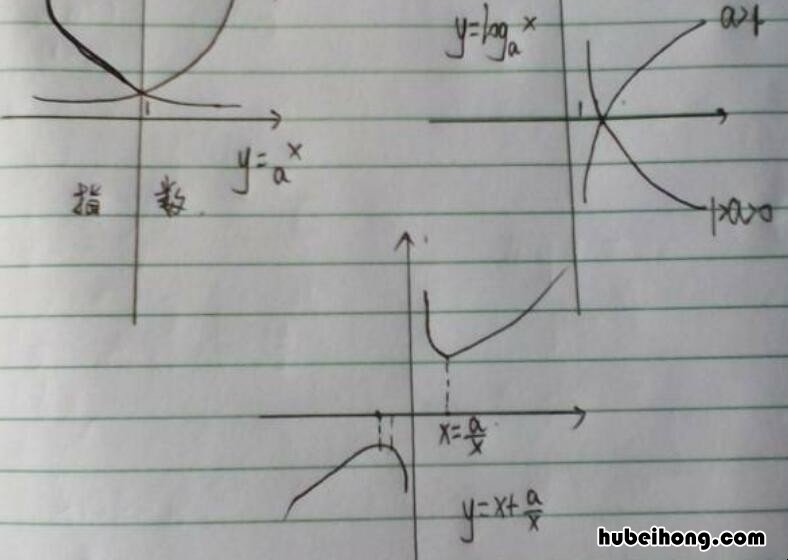 y=logₐx
a>1
1
1
y=aˣ
指 数
1>a>0
x=a/x
y=x+a/x
hubeihong.com